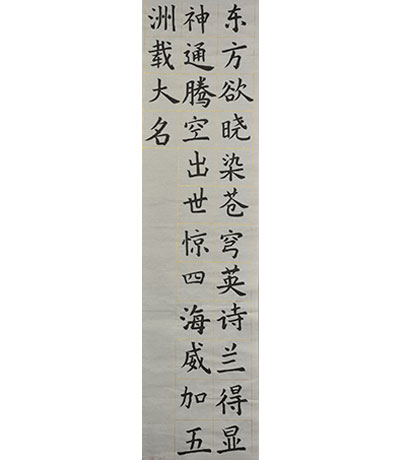 东方欲晓染苍穹英诗兰得显
神通腾空出世惊四海威加五
洲载大名